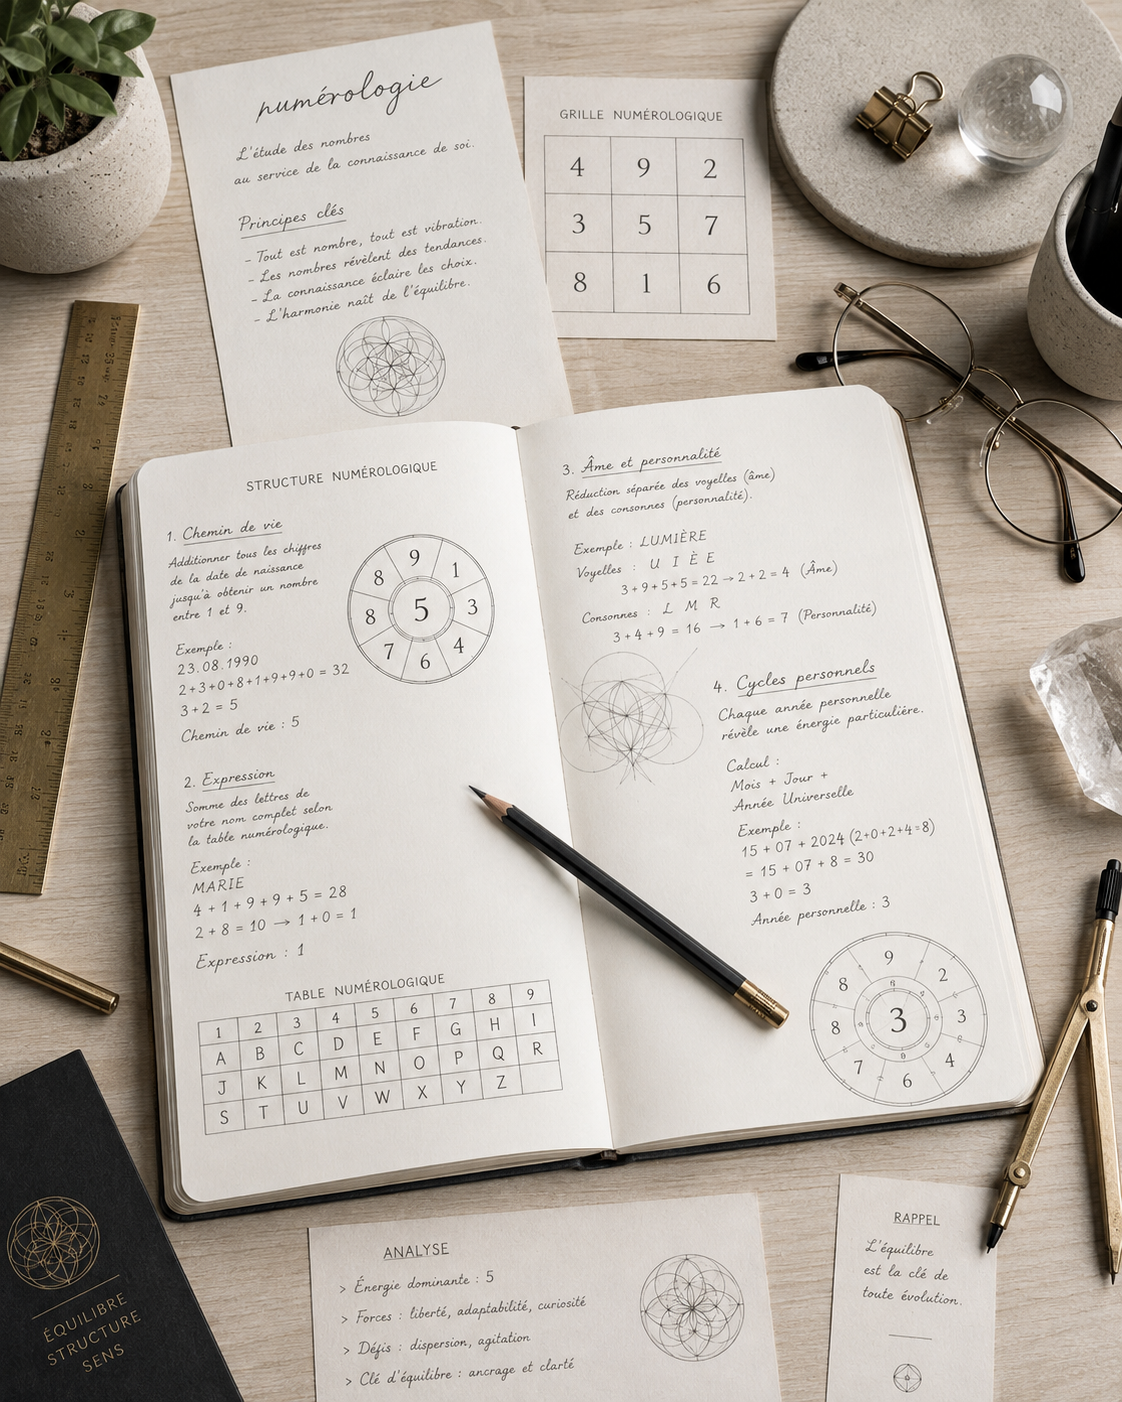 numérologie
L'étude des nombres
au service de la connaissance de soi.
Principes clés
- Tout est nombre, tout est vibration.
- Les nombres révèlent des tendances.
- La connaissance éclaire les choix.
- L'harmonie naît de l'équilibre.
GRILLE NUMÉROLOGIQUE
4 9 2
3 5 7
8 1 6
STRUCTURE NUMÉROLOGIQUE
1. Chemin de vie
Additionner tous les chiffres
de la date de naissance
jusqu'à obtenir un nombre
entre 1 et 9.
Exemple :
23.08.1990
2+3+0+8+1+9+9+0 = 32
3+2 = 5
Chemin de vie : 5
9
1
3
4
6
7
8
8
5
2. Expression
Somme des lettres de
votre nom complet selon
la table numérologique.
Exemple :
MARIE
4 + 1 + 9 + 9 + 5 = 28
2 + 8 = 10 → 1 + 0 = 1
Expression : 1
TABLE NUMÉROLOGIQUE
1 2 3 4 5 6 7 8 9
A B C D E F G H I
J K L M N O P Q R
S T U V W X Y Z
3. Âme et personnalité
Réduction séparée des voyelles (âme)
et des consonnes (personnalité).
Exemple : LUMIÈRE
Voyelles : U I È E
3+9+5+5 = 22 → 2+2 = 4 (Âme)
Consonnes : L M R
3+4+9 = 16 → 1+6 = 7 (Personnalité)
4. Cycles personnels
Chaque année personnelle
révèle une énergie particulière.
Calcul :
Mois + Jour +
Année Universelle
Exemple :
15 + 07 + 2024 (2+0+2+4=8)
= 15 + 07 + 8 = 30
3 + 0 = 3
Année personnelle : 3
9
2
3
4
6
7
8
8
3
ÉQUILIBRE
STRUCTURE
SENS
ANALYSE
> Énergie dominante : 5
> Forces : liberté, adaptabilité, curiosité
> Défis : dispersion, agitation
> Clé d'équilibre : ancrage et clarté
RAPPEL
L'équilibre
est la clé de
toute évolution.